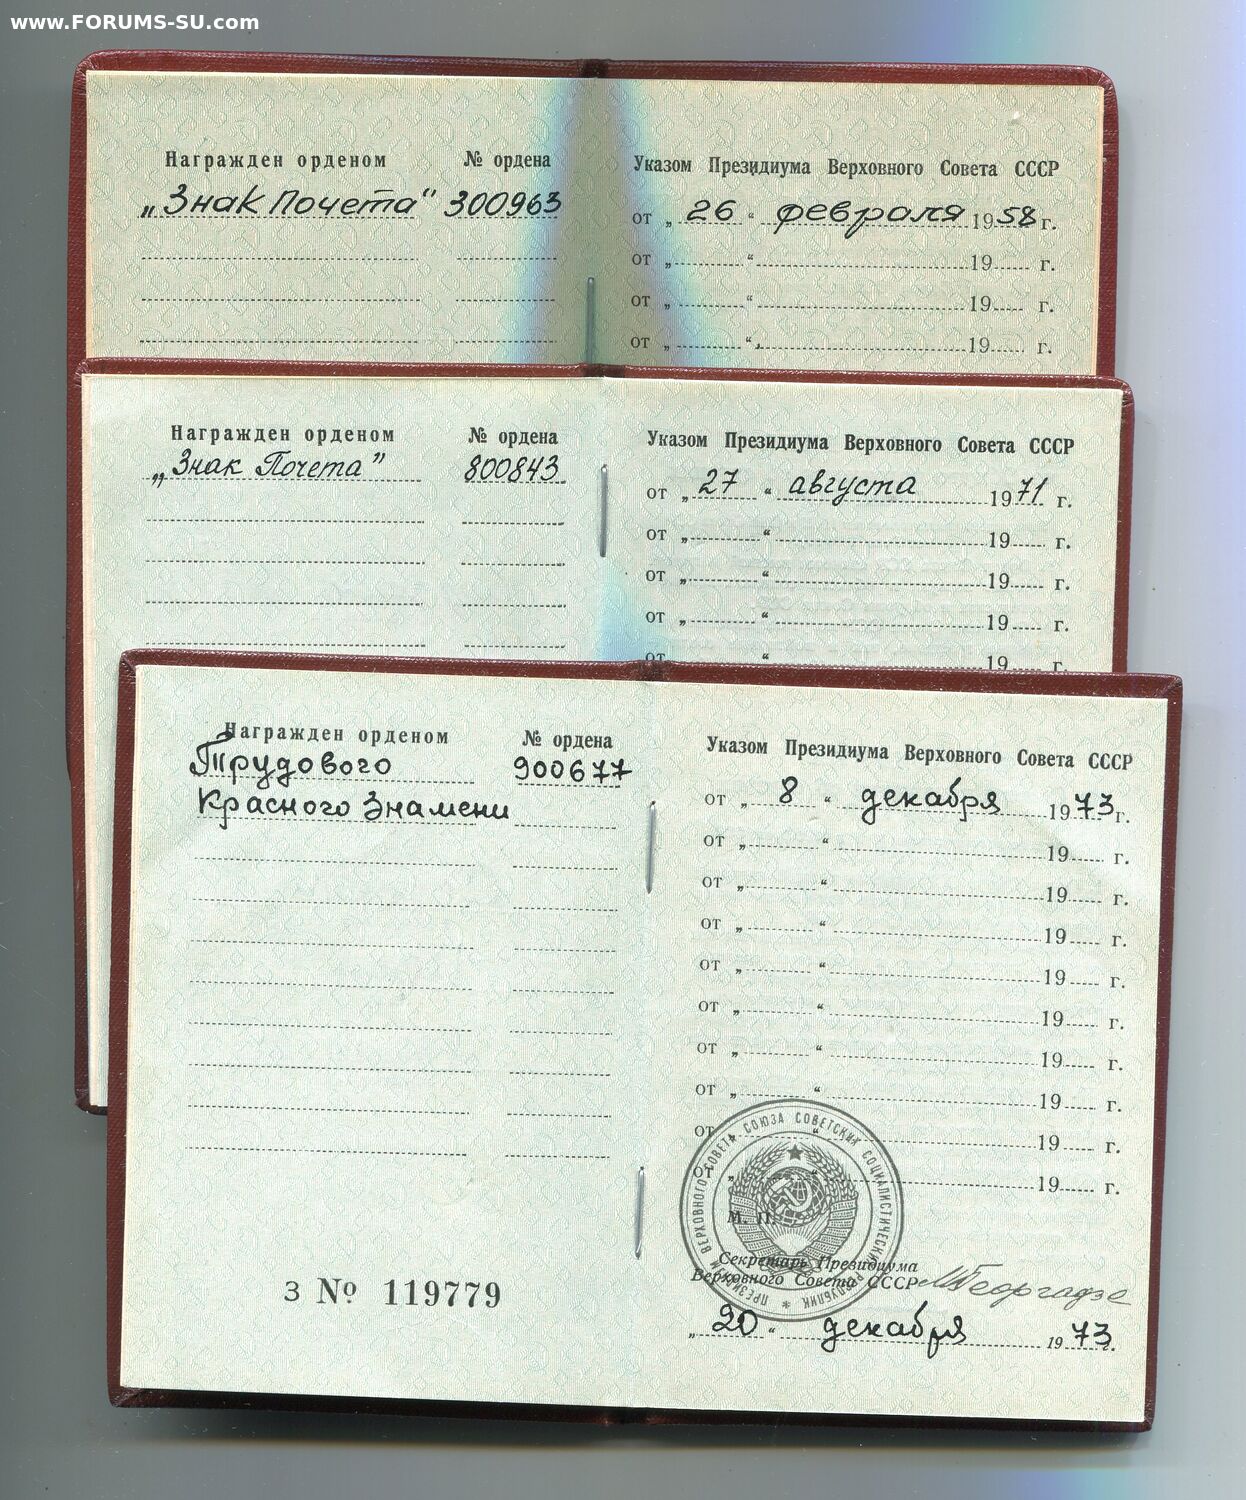 www.FORUMS-SU.com
Награжден орденом № ордена Указом Президиума Верховного Совета СССР
„Знак Почета“ 300963 от „ 26 “ февраля 1958 г.
от „ “ 19 г.
от „ “ 19 г.
от „ “ 19 г.
Награжден орденом № ордена Указом Президиума Верховного Совета СССР
„Знак Почета” 800843 от „ 27 “ августа 1971 г.
от „ “ 19 г.
от „ “ 19 г.
от „ “ 19 г.
от „ “ 19 г.
Награжден орденом № ордена Указом Президиума Верховного Совета СССР
Трудового 900677 от „ 8 “ декабря 1973 г.
Красного Знамени
от „ “ 19 г.
от „ “ 19 г.
от „ “ 19 г.
от „ “ 19 г.
от „ “ 19 г.
от „ “ 19 г.
от „ “ 19 г.
от „ “ 19 г.
от „ “ 19 г.
ПРЕЗИДИУМ ВЕРХОВНОГО СОВЕТА СОЮЗА СОВЕТСКИХ СОЦИАЛИСТИЧЕСКИХ РЕСПУБЛИК *
М. П.
Секретарь Президиума
Верховного Совета СССР МГеоргадзе
З № 119779
„ 20 “ декабря 1973 г.